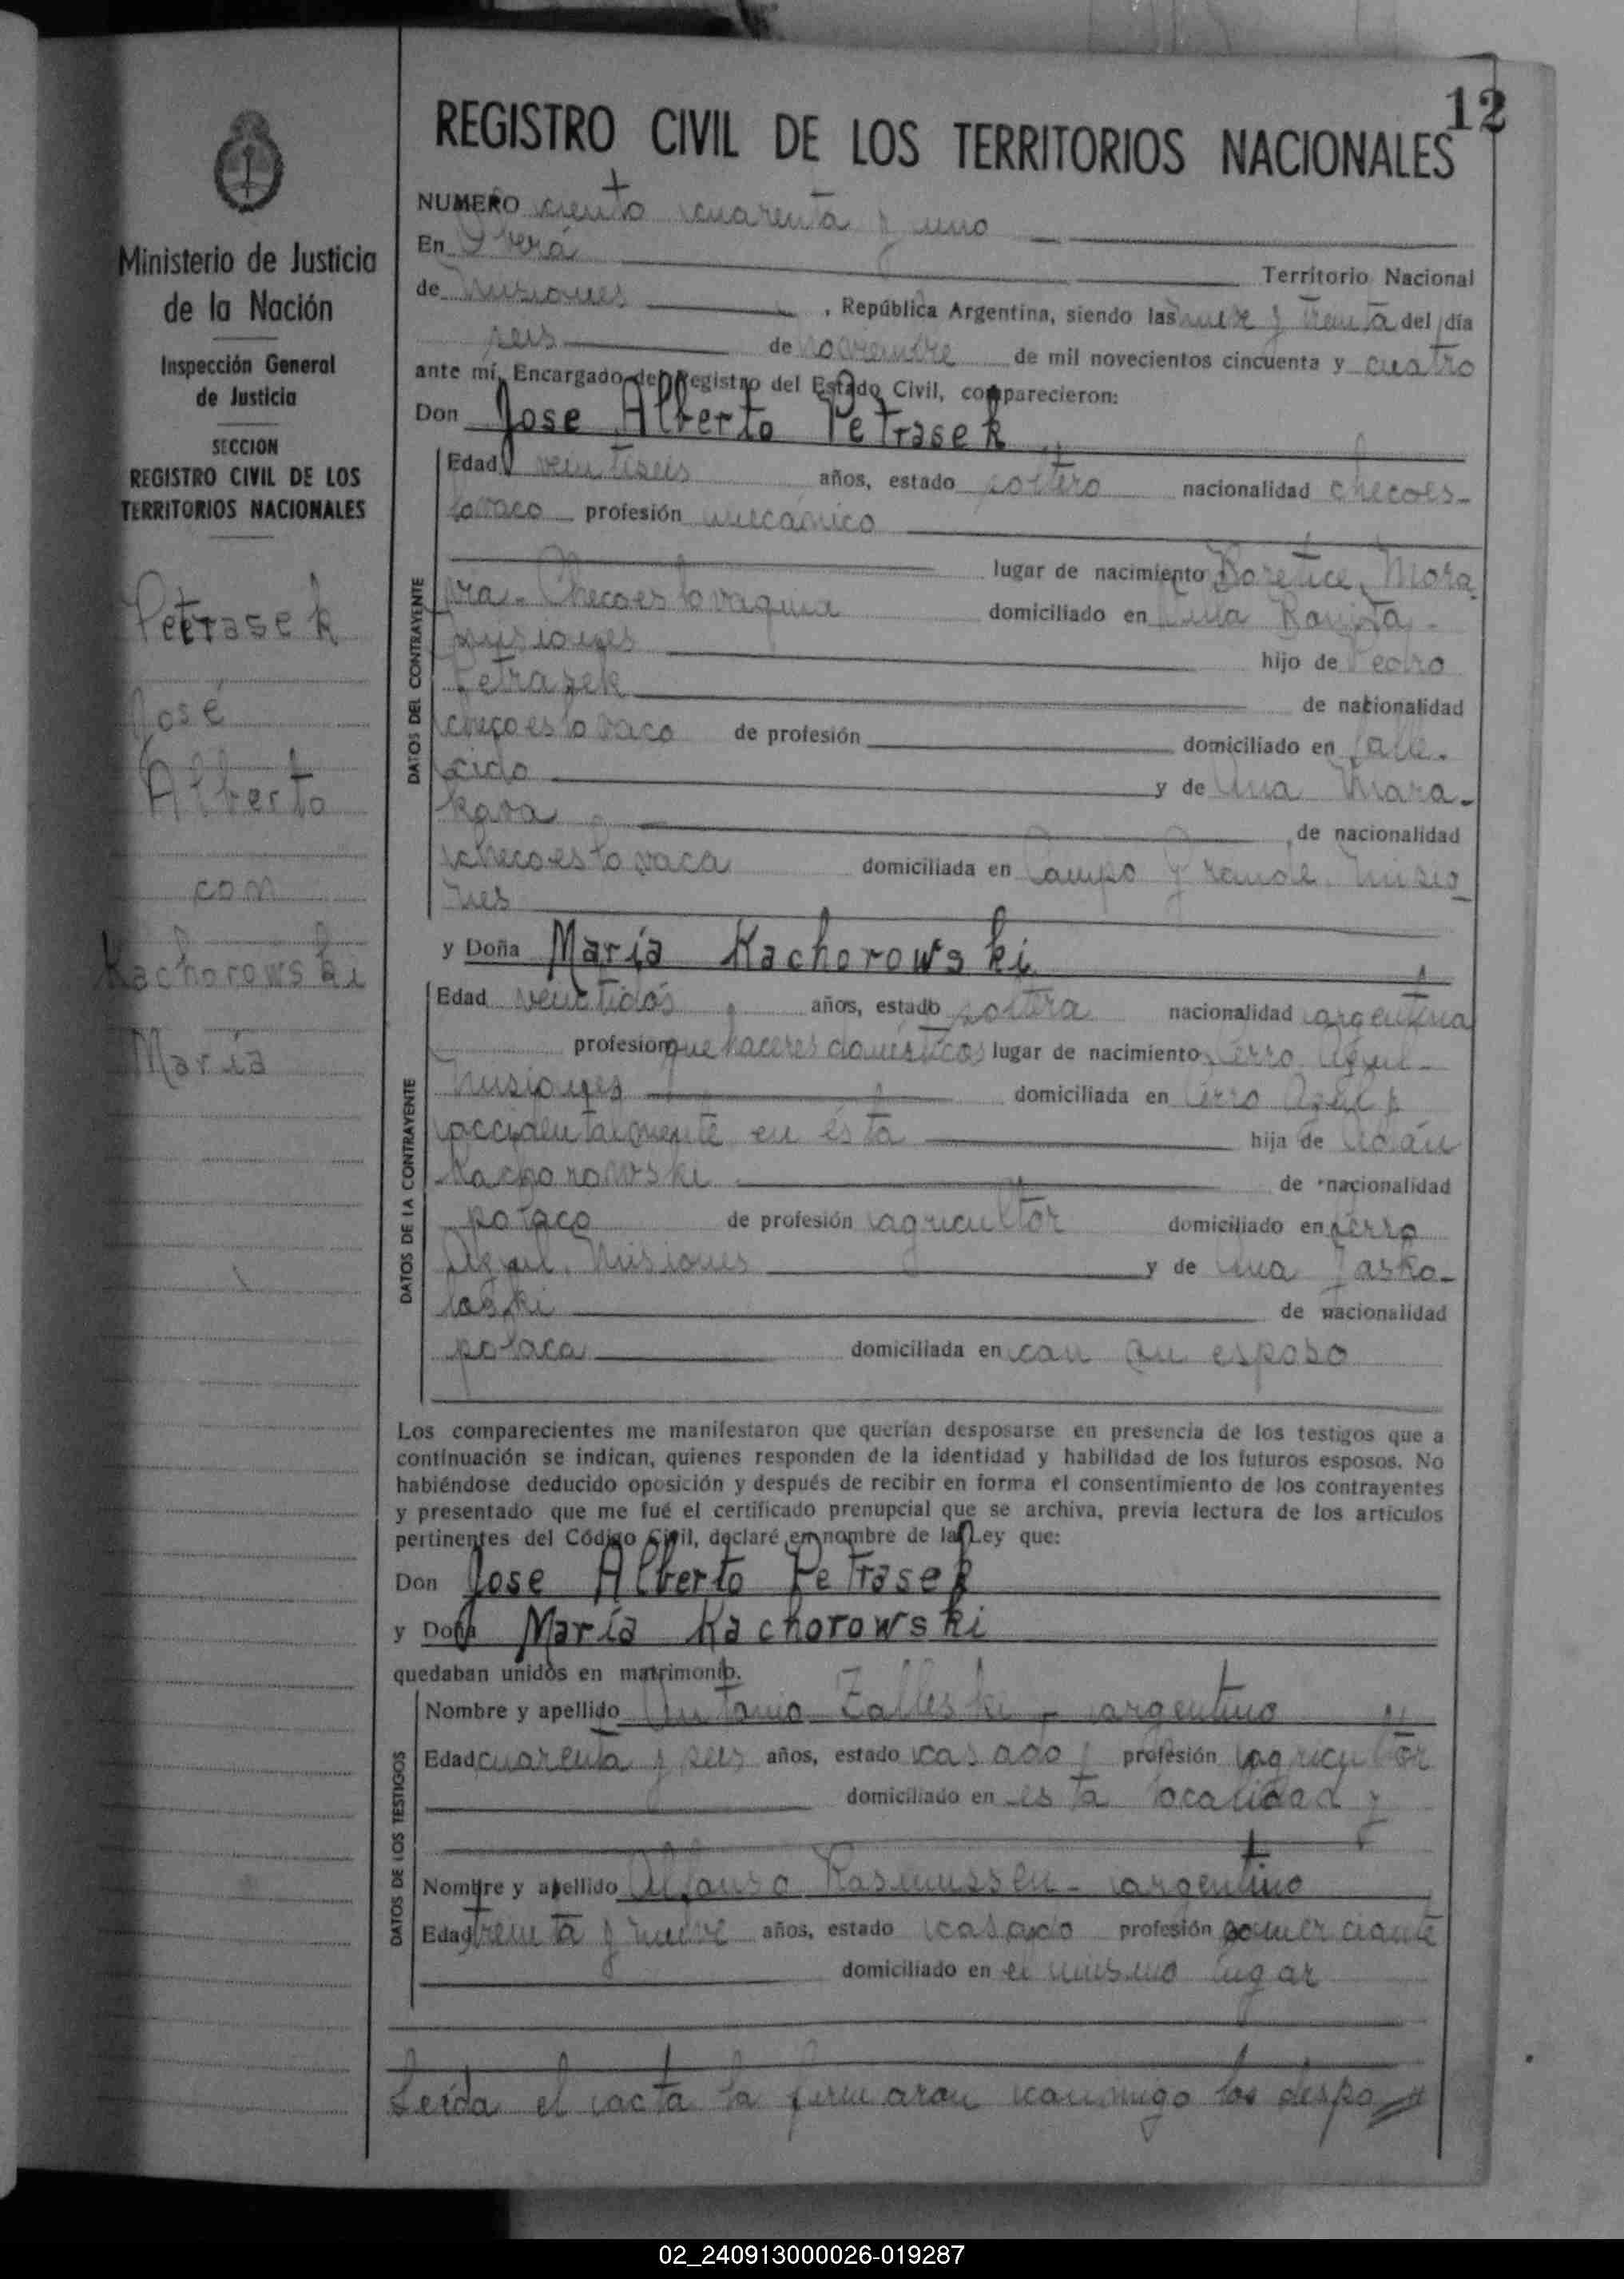 12
REGISTRO CIVIL DE LOS TERRITORIOS NACIONALES
Ministerio de Justicia
de la Nación
Inspección General
de Justicia
SECCION
REGISTRO CIVIL DE LOS
TERRITORIOS NACIONALES
Petrasek
José
Alberto
con
Kachorowski
María
NUMERO ciento cuarenta y uno
En Oberá Territorio Nacional
de Misiones , República Argentina, siendo las nueve y treinta del día
seis de noviembre de mil novecientos cincuenta y cuatro
ante mí, Encargado del Registro del Estado Civil, comparecieron:
Don Jose Alberto Petrasek
DATOS DEL CONTRAYENTE
Edad veintiseis años, estado soltero nacionalidad checoes-
lovaco profesión mecánico
lugar de nacimiento Boretice, Mora
via - Checoeslovaquia domiciliado en
Misiones hijo de Pedro
Petrasek de nacionalidad
checoeslovaco de profesión domiciliado en falle-
cido y de Ana Mara-
kova de nacionalidad
checoeslovaca domiciliada en Campo grande, Misio
nes
y Doña María Kachorowski
DATOS DE LA CONTRAYENTE
Edad veintidós años, estado soltera nacionalidad argentina
profesion quehaceres domésticos lugar de nacimiento Cerro Azul-
Misiones domiciliada en Cerro Azul y
accidentalmente en ésta hija de Adán
Kachorowski de nacionalidad
polaco de profesión agricultor domiciliado en Cerro
Azul, Misiones y de Ana Jasko-
loski de nacionalidad
polaca domiciliada en con su esposo
Los comparecientes me manifestaron que querían desposarse en presencia de los testigos que a
continuación se indican, quienes responden de la identidad y habilidad de los futuros esposos. No
habiéndose deducido oposición y después de recibir en forma el consentimiento de los contrayentes
y presentado que me fué el certificado prenupcial que se archiva, previa lectura de los artículos
pertinentes del Código Civil, declaré en nombre de la Ley que:
Don Jose Alberto Petrasek
y Doña María Kachorowski
quedaban unidos en matrimonio.
DATOS DE LOS TESTIGOS
Nombre y apellido Antonio Zalleski - argentino
Edad cuarenta y seis años, estado casado profesión agricultor
domiciliado en esta localidad y
Nombre y apellido Alfonso Rasmussen - argentino
Edad treinta y nueve años, estado casado profesión comerciante
domiciliado en el mismo lugar
Leída el acta la firmaron conmigo los despo
02_240913000026-019287